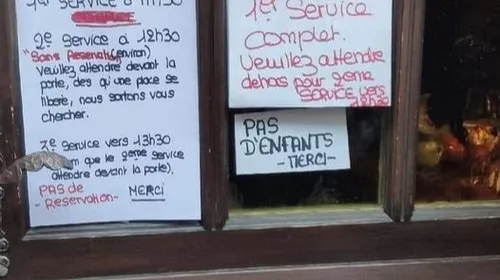 1er Service à 11h30
2e Service à 12h30
"Sans Reservation" (environ)
Veuillez attendre devant la
porte, des qu'une place se
libère, nous sortons vous
chercher.
3e Service vers 13h30
que le 2eme service
attendre devant la porte).
PAS de
- Reservation -
MERCI
1er Service
complet.
Veuillez attendre
dehors pour 2eme
SERVICE vers
12h30
PAS
D'ENFANTS
- MERCI -